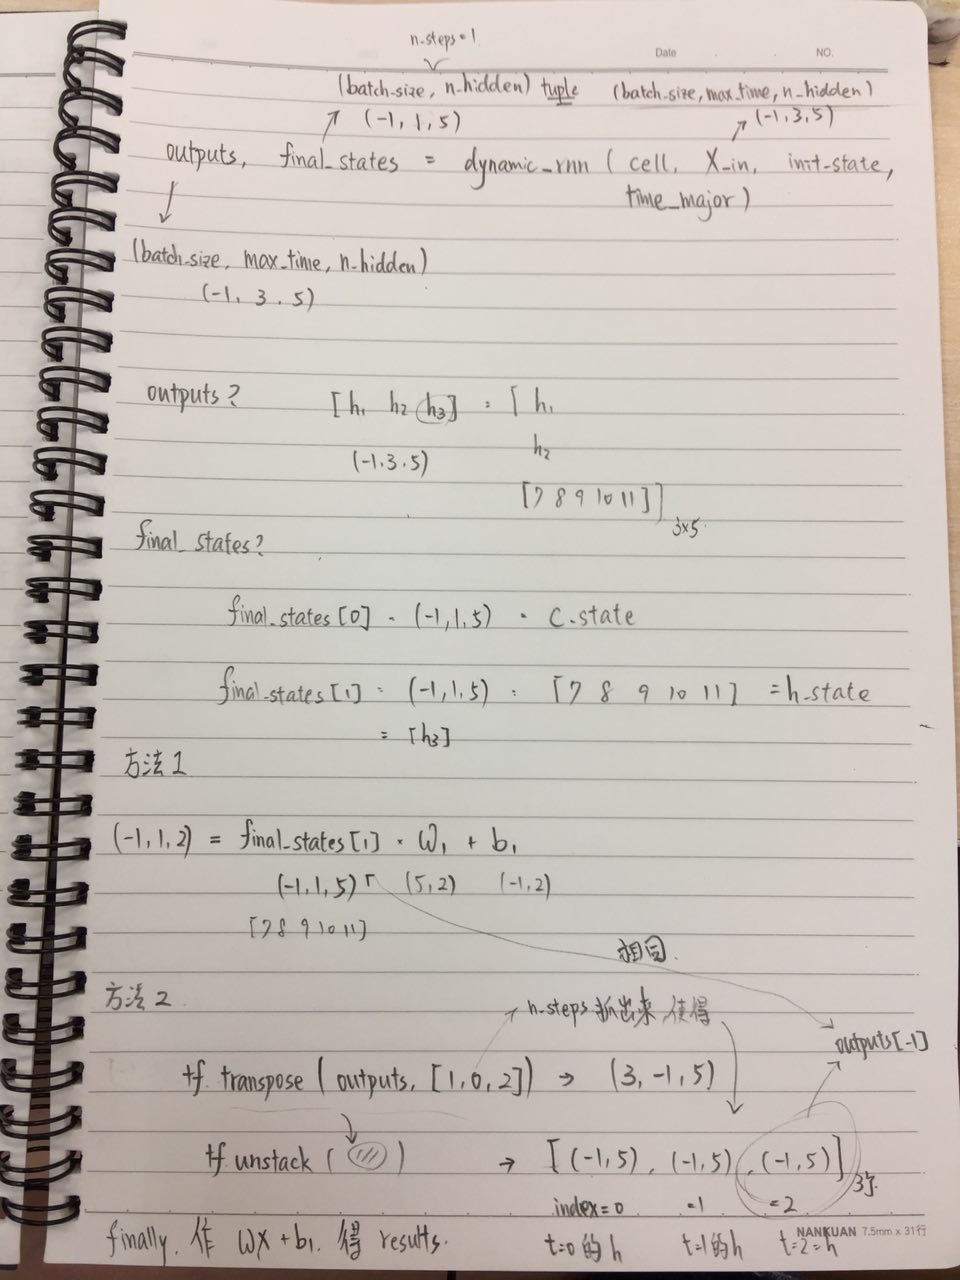 n-steps=1
Date NO.
(batch-size, n-hidden) tuple (batch-size, max-time, n-hidden)
(-1, 1, 5) (-1, 3, 5)
outputs, final_states = dynamic_rnn ( cell, X_in, init-state,
time_major )
(batch-size, max-time, n-hidden)
(-1, 3, 5)
outputs? [h₁ h₂ h₃] = [ h₁
h₂
(-1, 3, 5)
[7 8 9 10 11] ] 3x5
final_states?
final_states [0] = (-1, 1, 5) = C-state
final-states [1] = (-1, 1, 5) = [7 8 9 10 11] = h-state
= [h₃]
方法1
(-1, 1, 2) = final_states [1] · W₁ + b₁
(-1, 1, 5) (5, 2) (-1, 2)
[7 8 9 10 11]
相同
方法2
n-steps 抓出来,使得
outputs[-1]
tf. transpose ( outputs, [1, 0, 2] ) → (3, -1, 5)
tf. unstack ( ) → [ (-1, 5), (-1, 5), (-1, 5) ] 3个
index=0 =1 =2
finally, 作 WX + b₁, 得 results.
t=0 的 h t=1 的 h t=2 = h
NANKUAN 7.5mm x 31行